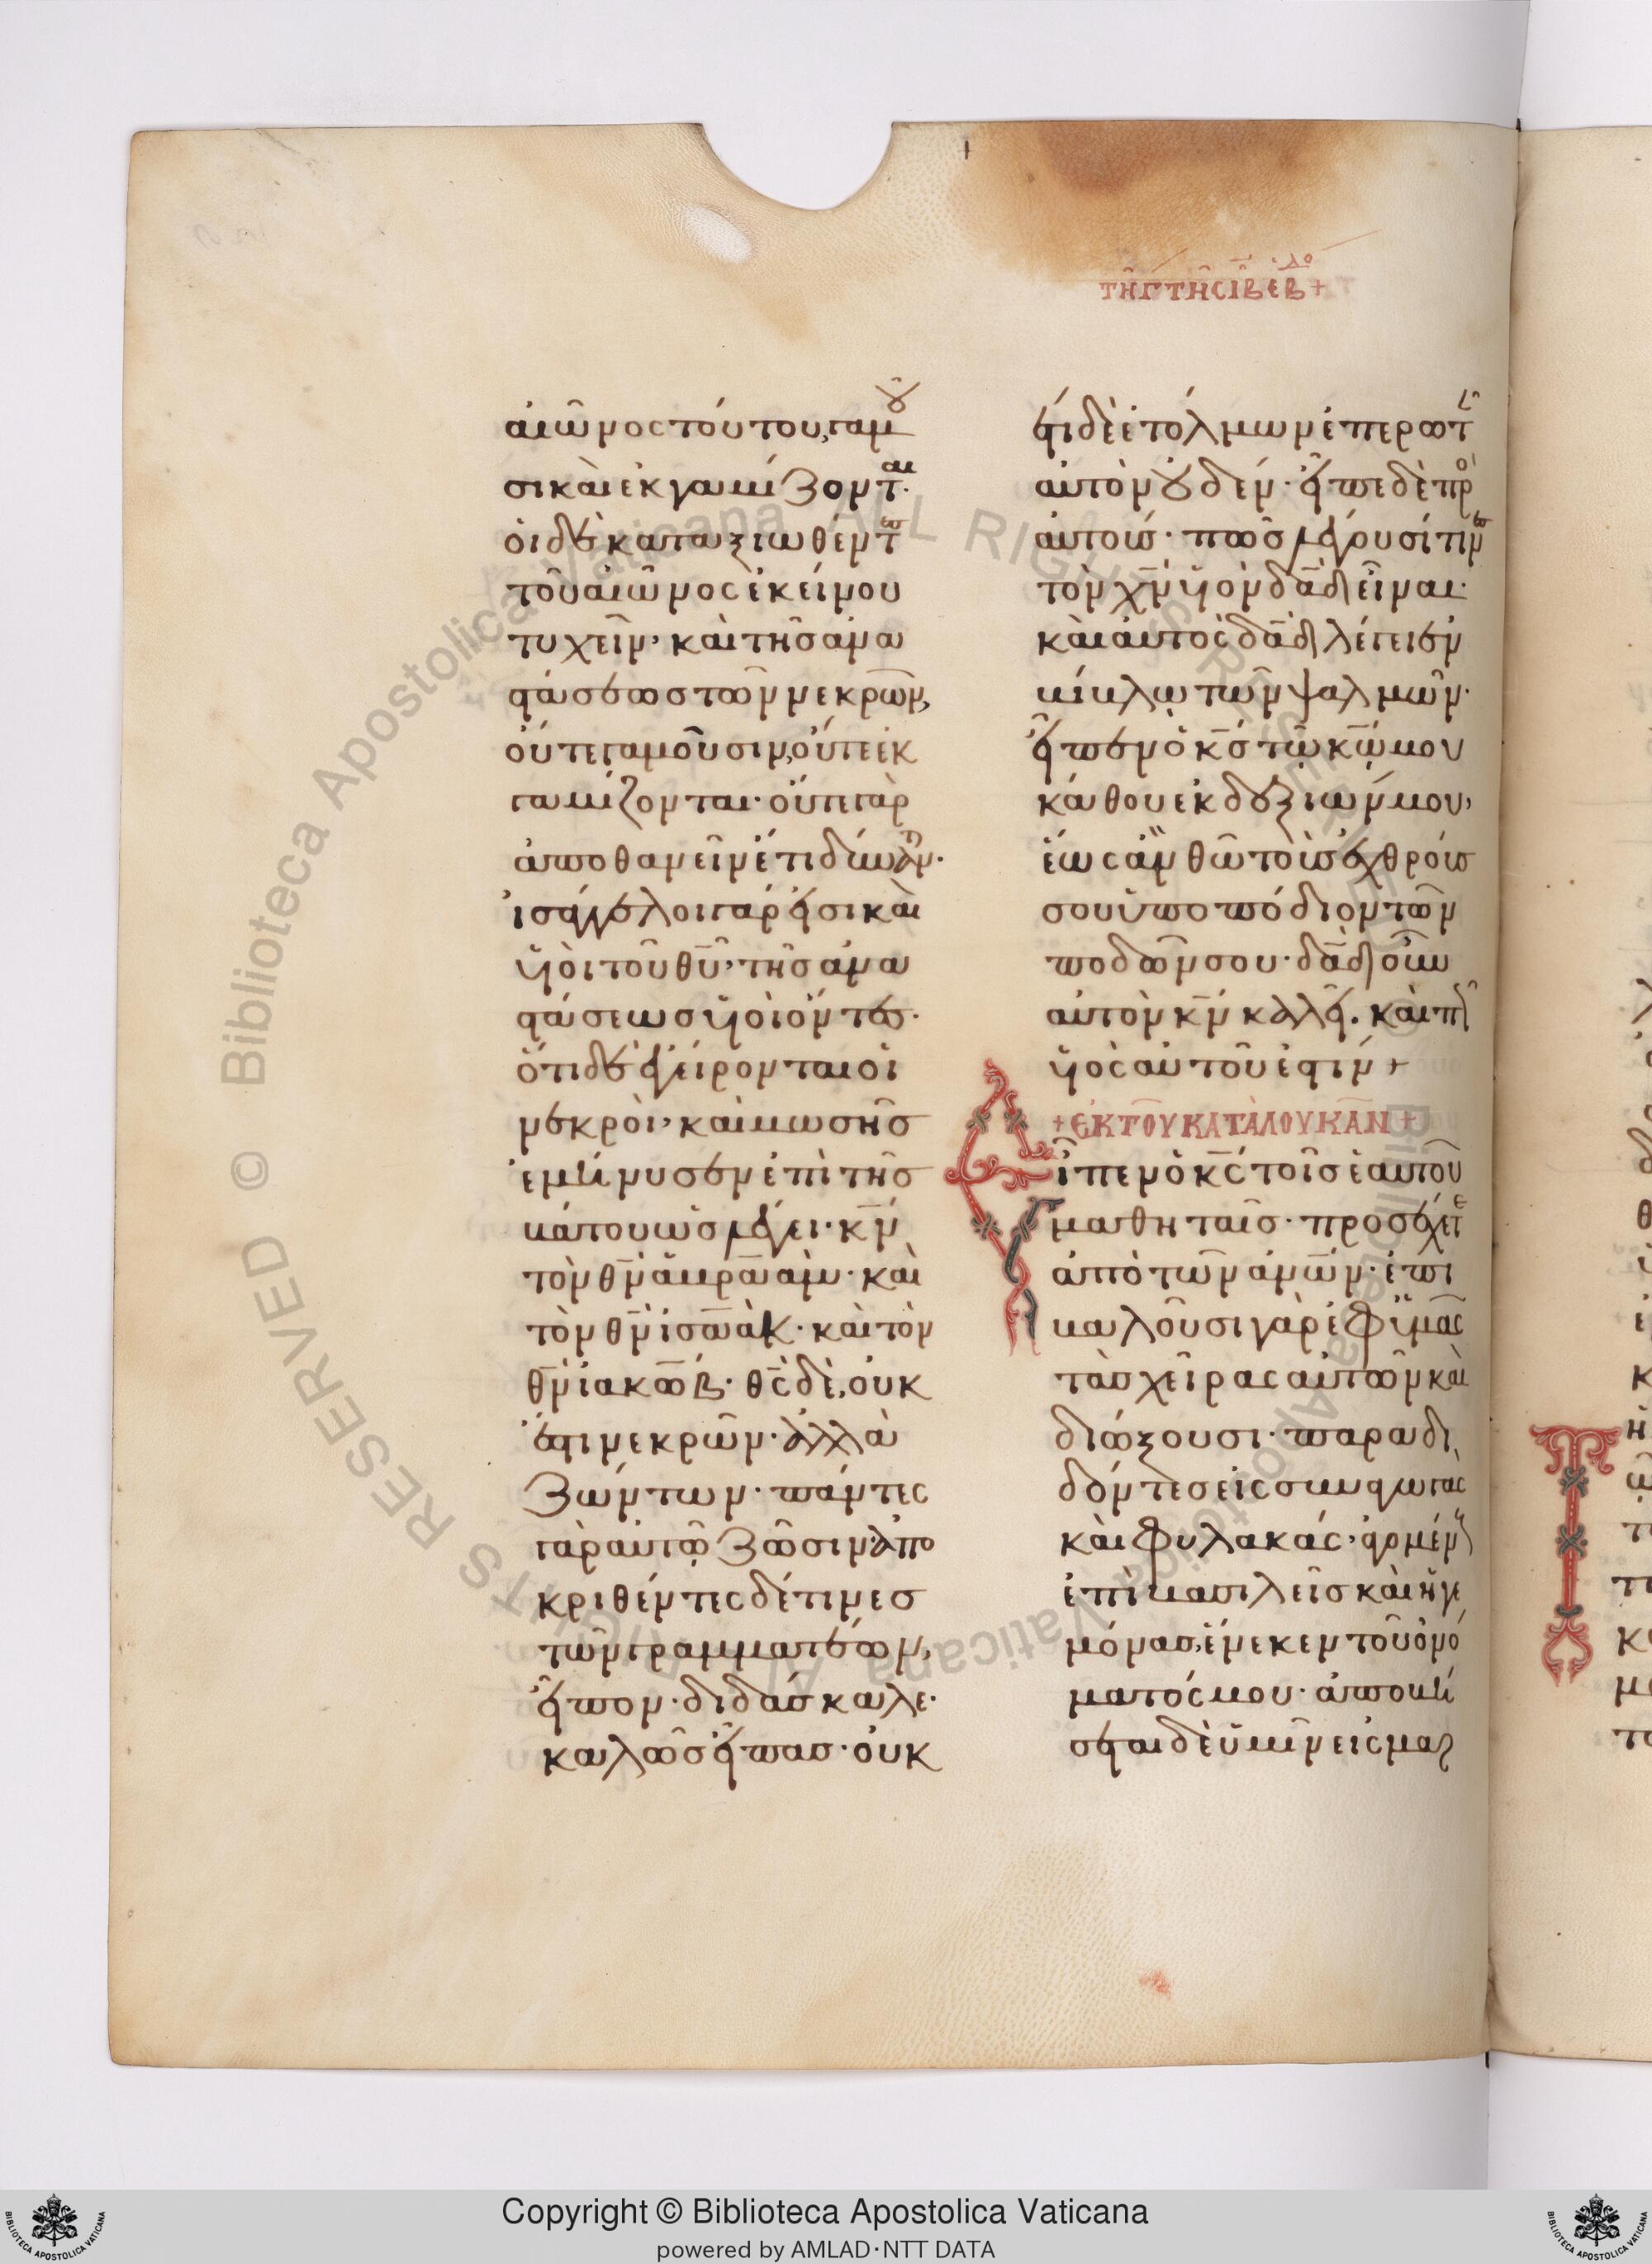 τῆ Γ τῆς ΙΒ ἑβ +
αἰῶνος τούτου, γαμοῦ
σι καὶ ἐκγαμίζονται.
οἱ δὲ καταξιωθέντες
τοῦ αἰῶνος ἐκείνου
τυχεῖν, καὶ τῆς ἀνα
στάσεως τῶν νεκρῶν,
οὔτε γαμοῦσιν, οὔτε ἐκ
γαμίζονται· οὔτε γὰρ
ἀποθανεῖν ἔτι δύναν·
ἰσάγγελοι γάρ εἰσι καὶ
υἱοὶ τοῦ θυ̅, τῆς ἀνα
στάσεως υἱοὶ ὄντες·
ὅτι δὲ ἐγείρονται οἱ
νεκροὶ, καὶ μωσῆς
ἐμήνυσεν ἐπὶ τῆς
βάτου ὡς λέγει· κ̅ν̅
τὸν θ̅ν̅ ἀβραὰμ· καὶ
τὸν θ̅ν̅ ἰσαὰκ· καὶ τὸν
θ̅ν̅ ἰακώβ· θ̅ς̅ δὲ, οὐκ
ἔστι νεκρῶν· ἀλλὰ
ζώντων· πάντες
γὰρ αὐτῷ ζῶσιν· ἀπο
κριθέντες δέ τινες
τῶν γραμματέων,
εἶπον· διδάσκαλε·
καλῶς εἶπας· οὐκ
έτι δὲ ἐτόλμων ἐπερωτᾶν
αὐτὸν οὐδέν· εἶπε δὲ πρὸ
αὐτούς· πῶς λέγουσί τινες
τὸν χ̅ν̅ υἱὸν δα̅δ̅ εἶναι·
καὶ αὐτὸς δα̅δ̅ λέγει ἐν
βίβλῳ τῶν ψαλμῶν·
εἶπεν ὁ κ̅ς̅ τῷ κ̅ῳ̅ μου
κάθου ἐκ δεξιῶν μου,
ἕως ἂν θῶ τοὺς ἐχθρούς
σου ὑποπόδιον τῶν
ποδῶν σου· δα̅δ̅ οὖν
αὐτὸν κ̅ν̅ καλεῖ. καὶ πῶ
υἱὸς αὐτοῦ ἐστίν +
+ ἘΚ ΤΟΥ ΚΑΤᾺ ΛΟΥΚΑΝ +
Εἶπεν ὁ κ̅ς̅ τοῖς ἑαυτοῦ
μαθηταῖς· προσέχετε
ἀπὸ τῶν ἀ̅ν̅ω̅ν̅· ἐπι
βαλοῦσι γὰρ ἐφ ὑμᾶς
τὰς χεῖρας αὐτῶν καὶ
διώξουσι· παραδι
δόντες εἰς συναγωγὰς
καὶ φυλακάς, ἀγομέν
ἐπὶ βασιλεῖς καὶ ἡγε
μόνας, ἕνεκεν τοῦ ὀνό
ματός μου· ἀποβή
σεται δὲ ὑμῖν εἰς μαρ
Copyright © Biblioteca Apostolica Vaticana
powered by AMLAD·NTT DATA